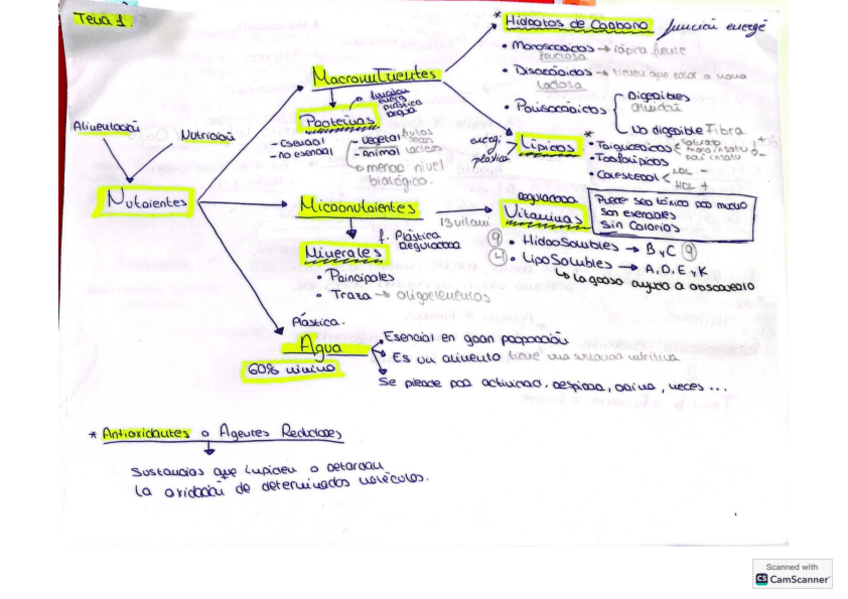 Tema 1.
* Hidratos de Carbono función energé
• Monosacáridos → rápida fuente
fructosa
• Disacáridos → tienen que a una
Lactosa
• Polisacáridos
Digeribles
almidón
No digerible Fibra
Macronutrientes
función
energ
plástica
regula
Proteínas
- Esencial
- no esencial
- vegetal frutos secos
- animal lácteos
→ menor nivel
biológico.
Alimentación
Nutrición
energ.
plástica
Lípidos
*
• Triglicéridos < saturato +
monoinsatu
poliinsatu -
• Fosfolípidos
• Colesterol < LDL -
HDL +
Nutrientes
Micronutrientes
13 vitami
Reguladora
Vitaminas
Puede ser tóxico por mucho
Son esenciales
Sin Calorías
f. Plástica
Reguladora
Minerales
• Principales
• Traza → oligoelementos
9 • HidroSolubles → B y C 9
4 • LipoSolubles → A, D, E y K
↳ La grasa ayuda a absorverlo
Plástica.
Agua
60% mínimo
Esencial en gran proporción
Es un alimento tiene una función nutritiva
Se pierde por actividad, respirar, orina, heces ...
* Antioxidantes o Agentes Reductores
Sustancias que impiden o retardan
la oxidación de determinadas moléculas.
Scanned with
CS CamScanner